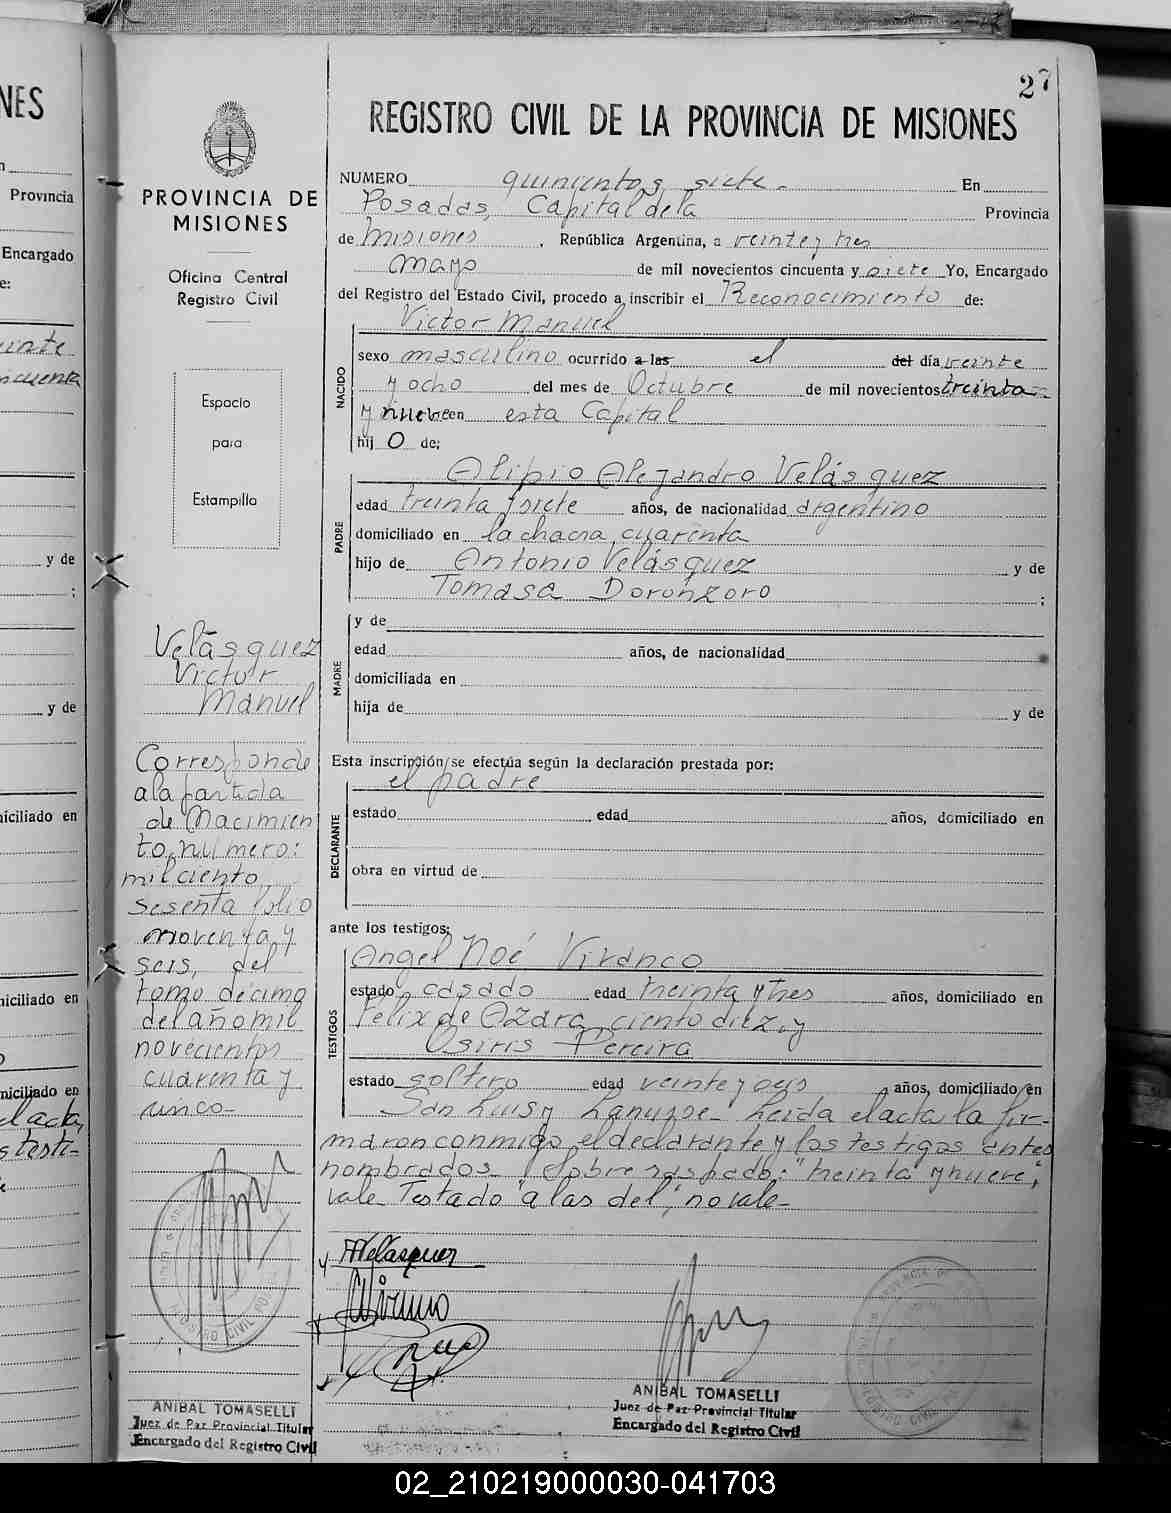 27
REGISTRO CIVIL DE LA PROVINCIA DE MISIONES
NUMERO quinientos siete.- En
Posadas, Capital de la Provincia
de Misiones, República Argentina, a veinte y tres
mayo de mil novecientos cincuenta y siete Yo, Encargado
del Registro del Estado Civil, procedo a inscribir el Reconocimiento de:
NACIDO
Victor Manuel
sexo masculino ocurrido a las el del día veinte
y ocho del mes de Octubre de mil novecientos treinta
y nueve en esta Capital
hijo de:
PADRE
Alipio Alejandro Velásquez
edad treinta y siete años, de nacionalidad argentino
domiciliado en la chacra cuarenta
hijo de Antonio Velásquez y de
Tomasa Doronzoro ;
MADRE
y de
edad años, de nacionalidad
domiciliada en
hija de y de
Esta inscripción se efectúa según la declaración prestada por:
DECLARANTE
el padre
estado edad años, domiciliado en
obra en virtud de
ante los testigos:
TESTIGOS
Angel Noé Vivanco
estado casado edad treinta y tres años, domiciliado en
Felix de Azara, ciento diez y
Osiris Pereira
estado soltero edad veinte y años, domiciliado en
San Luis y Lanusse- Leida el acta la fir-
maron conmigo, el declarante y los testigos antes
nombrados- Sobre raspado: "treinta y nueve",
vale Testado "a las del", no vale-
AVelasquez
ANIBAL TOMASELLI
Juez de Paz Provincial Titular
Encargado del Registro Civil
PROVINCIA DE
MISIONES
Oficina Central
Registro Civil
Espacio
para
Estampilla
Velásquez
Victor
Manuel
Corresponde
a la partida
de Nacimien
to, número:
mil ciento
sesenta folio
noventa y
seis, del
tomo décimo
del año mil
novecientos
cuarenta y
cinco-
ANIBAL TOMASELLI
Juez de Paz Provincial Titular
Encargado del Registro Civil
NES
Provincia
Encargado
e:
y de
;
y de
niciliado en
niciliado en
niciliado en
el acta,
s testi-
02_210219000030-041703